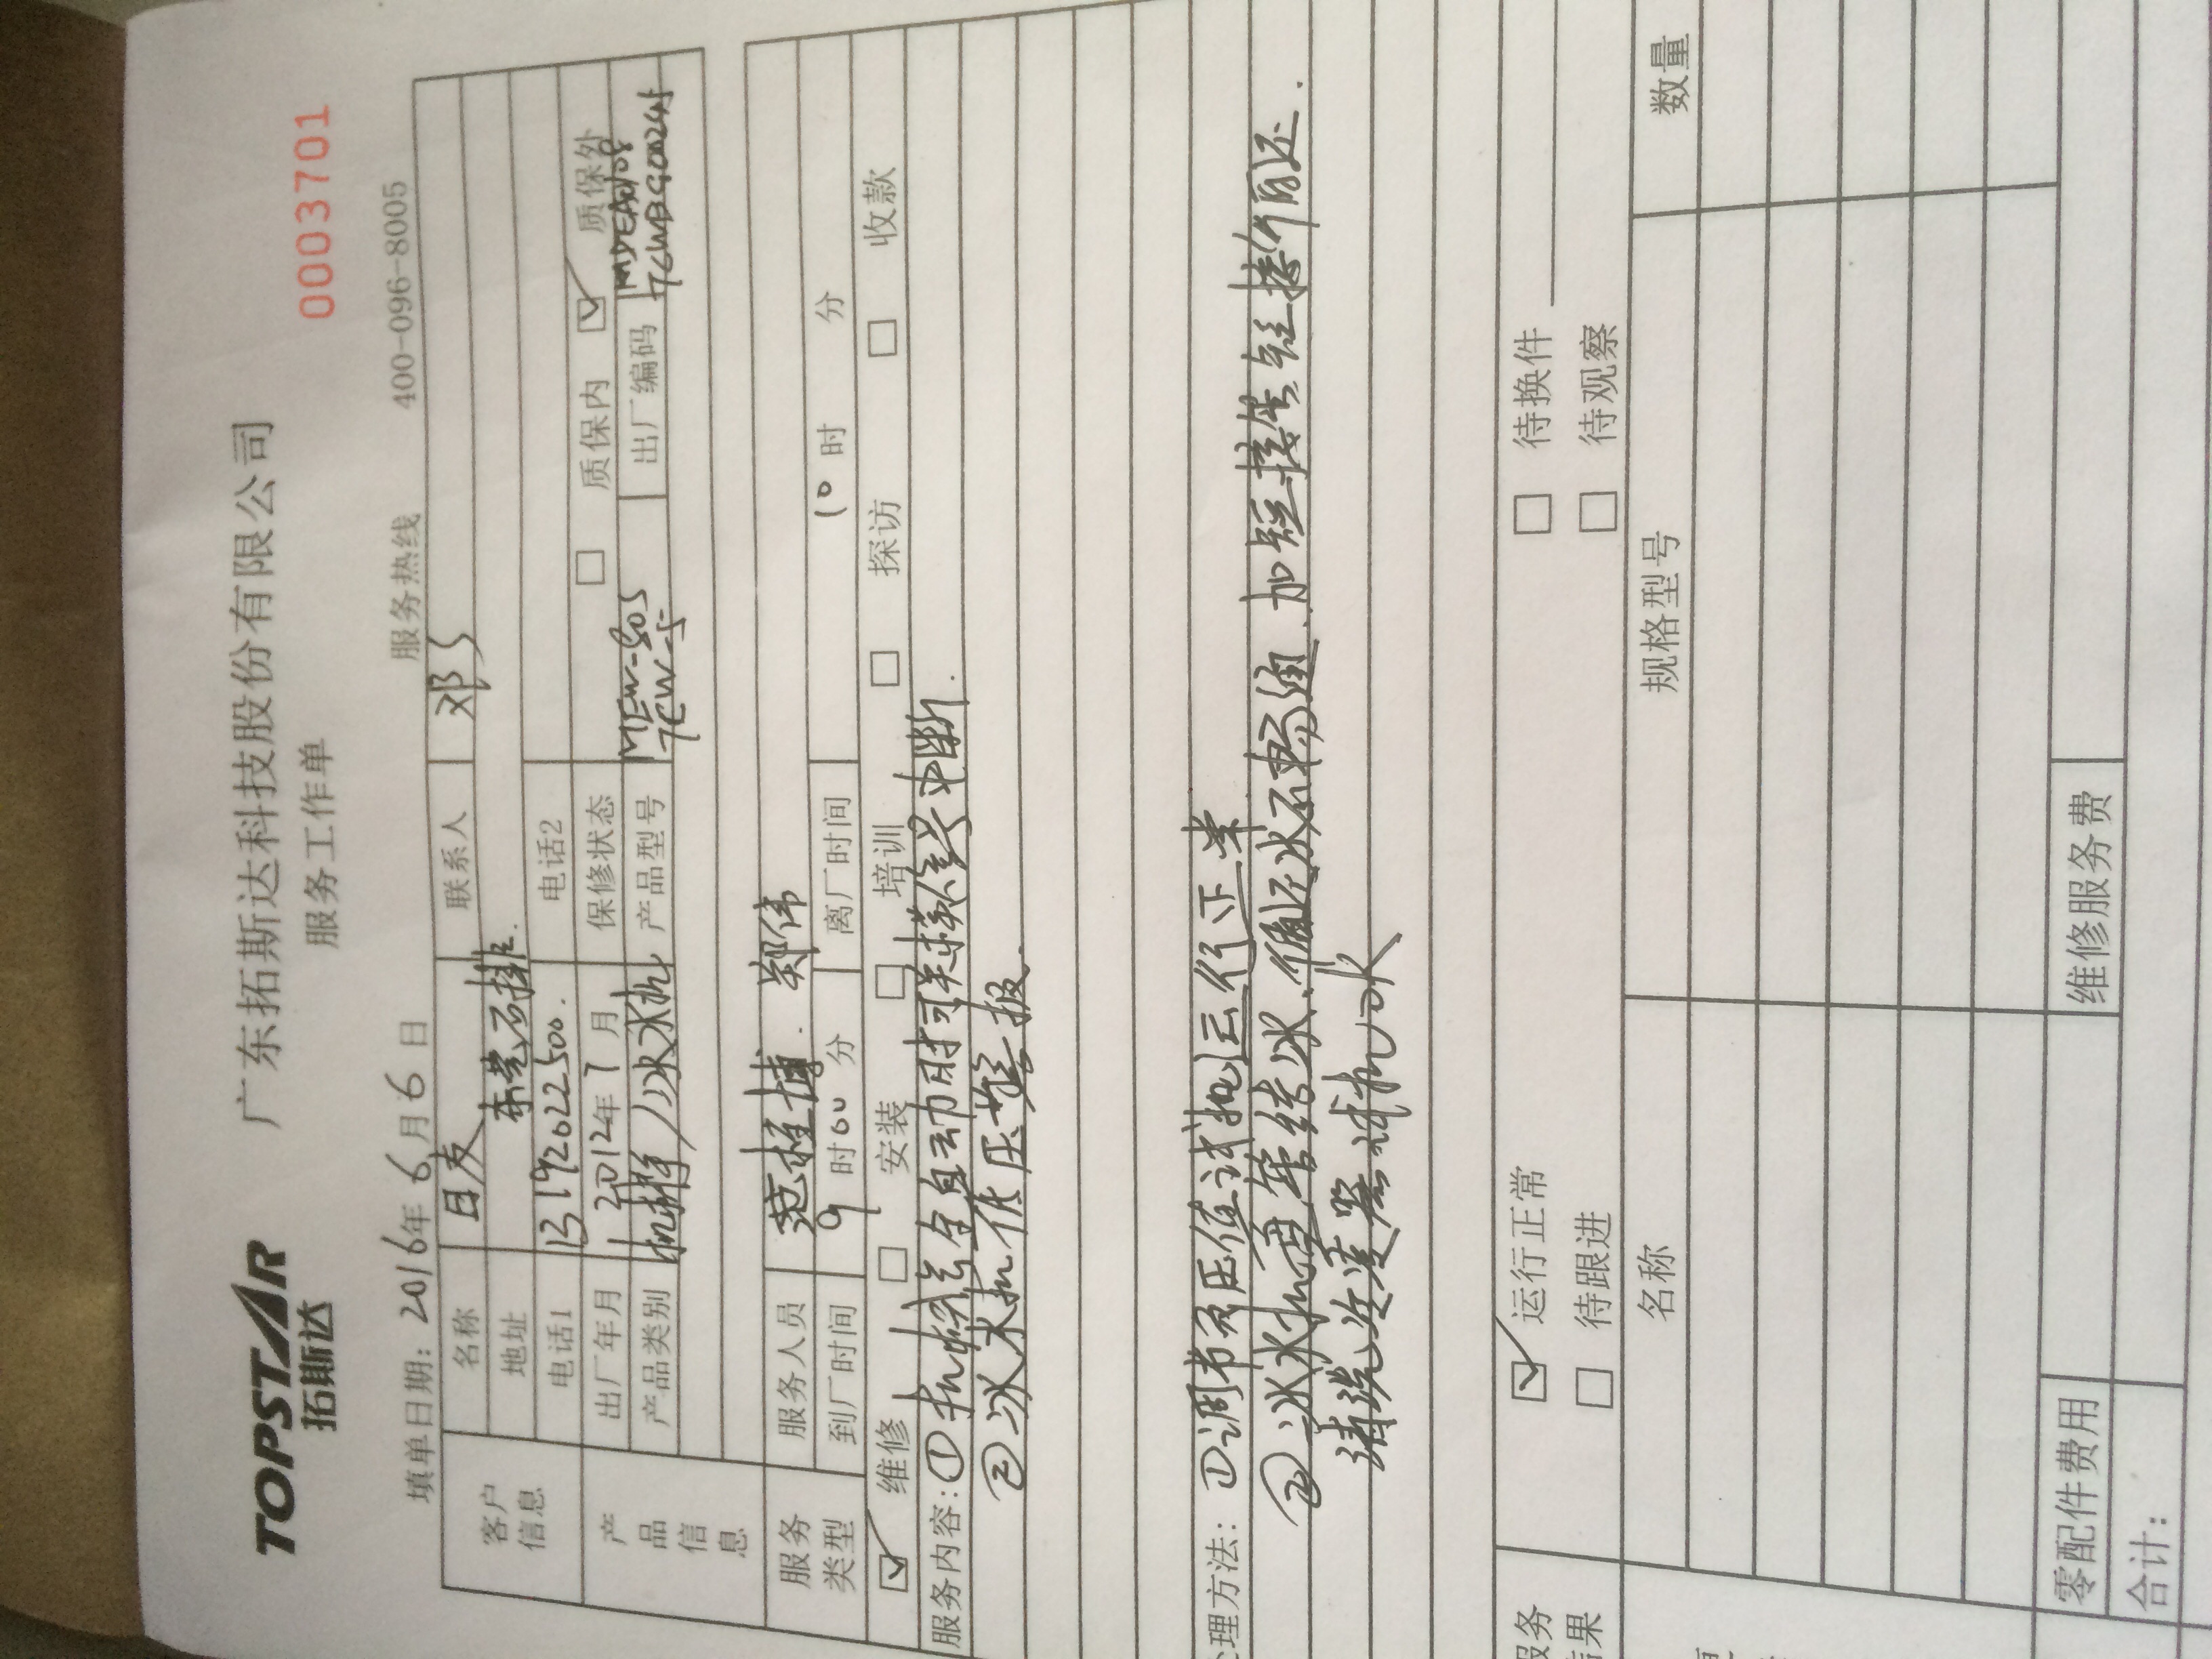 TOPSTAR
拓斯达
广东拓斯达科技股份有限公司
服务工作单
0003701
填单日期：2016年6月6日
服务热线 400-096-8005
客户信息
名称 日友 联系人 邓S
地址 东莞石排.
电话1 13192022500. 电话2
产品信息
出厂年月 2012年7月 保修状态 质保内 质保外
产品类别 机械手/冰水机 产品型号 MEW-80S 出厂编码
TEW-5
服务人员 郑伟
到厂时间 9时00分 离厂时间 10时 分
服务类型
维修 安装 培训 探访 收款
服务内容：①机械手全自动时关模信号中断.
②冰水机低压警报.
处理方法：①调节负压值试机运行正常
②冰水机 循环水不畅通.加短接
清洗 机水
服务结果
运行正常 待换件
待跟进 待观察
名称 规格型号 数量
零配件费用 维修服务费
合计：